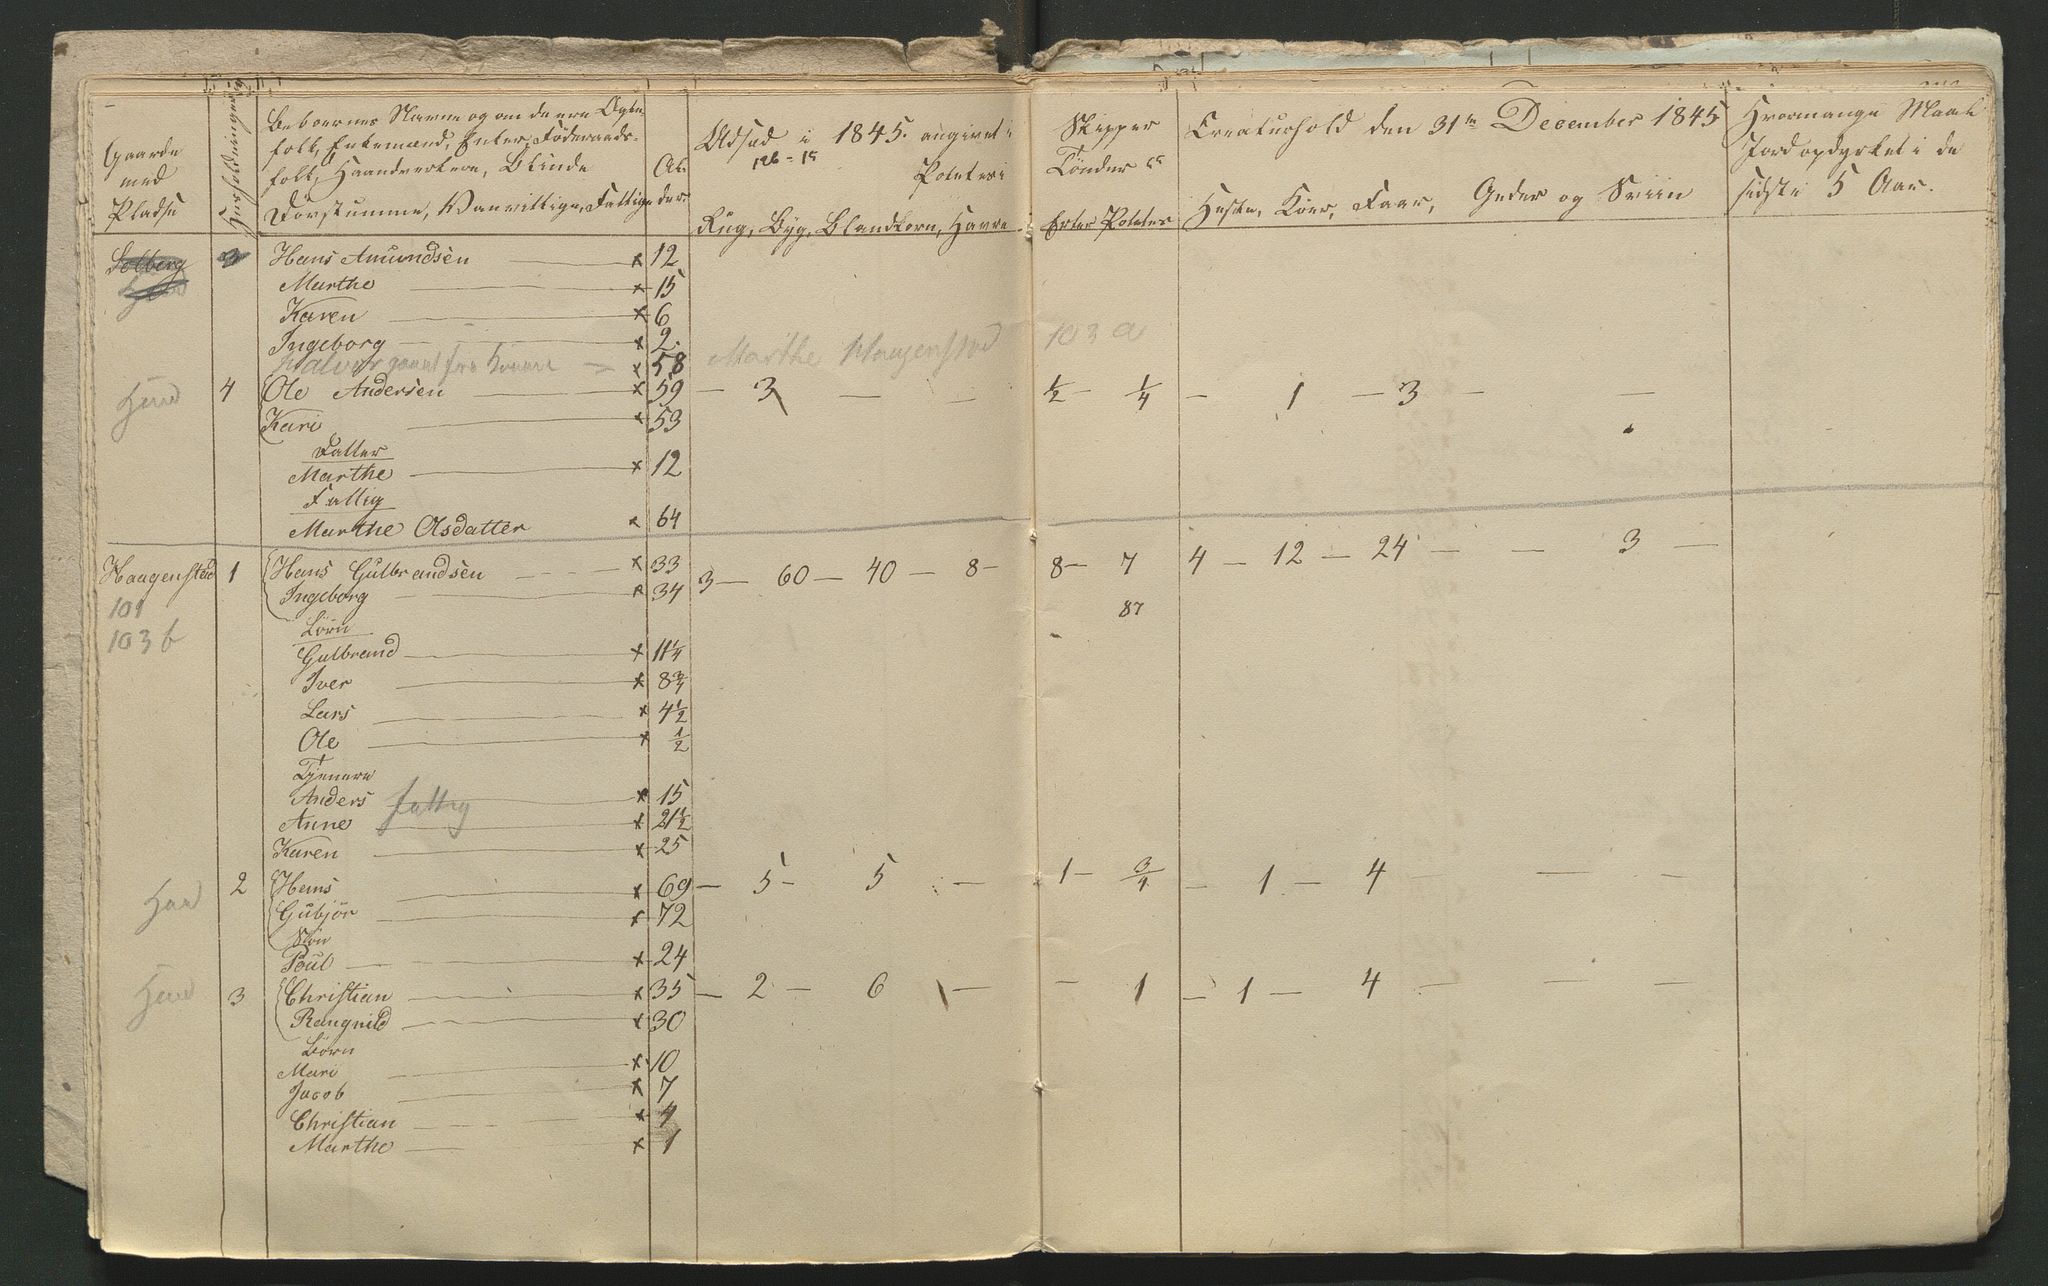 Gaarde
med
Pladse
Huusholdninger
Beboernes Navne og om de ere Ægte-
folk, Enkemænd, Enker, Föderaads-
folk, Haandverkere, Blinde
Dövstumme, Vanvittige, Fattige
Al-
der
Udsæd i 1845. angivet i
Poteter i
Rug, Byg, Blandkorn, Havre
Skipper
Tönder
Erter Poteter
Creaturhold den 31te December 1845
Heste, Köer, Faar, Geder og Sviin
Hvormange Maal
Jord opdyrket i de
sidste 5 Aar.
Solberg 3 Hans Amundsen x 12
Marthe x 15
Karen x 6
Ingeborg x 2
x 58 Marthe Haagenstad 103 a
4 Ole Andersen x 59 — 3 — — ½ — ¼ — 1 — 3 — —
Kari x 53
Datter
Marthe x 12
Fattig
Marthe Olsdatter x 64
Haagenstad 1 Hans Gulbrandsen x 33 3 — 60 — 40 — 8 — 8 — 7 4 — 12 — 24 — — 3 —
101 Ingeborg x 34 87
103 b Börn
Gulbrand x 11¼
Iver x 8¾
Lars x 4½
Ole x ½
Tjenere
Anders fattig x 15
Anne x 21½
Karen x 25
2 Hans x 69 — 5 — 5 — 1 — ¾ — 1 — 4 — — —
Gubjör x 72
Sön
Poul x 24
3 Christian x 35 — 2 — 6 — — 1 — 1 — 4 — — —
Rangnild x 30
Börn
Mari x 10
Jacob x 7
Christian x 4
Marthe x 1